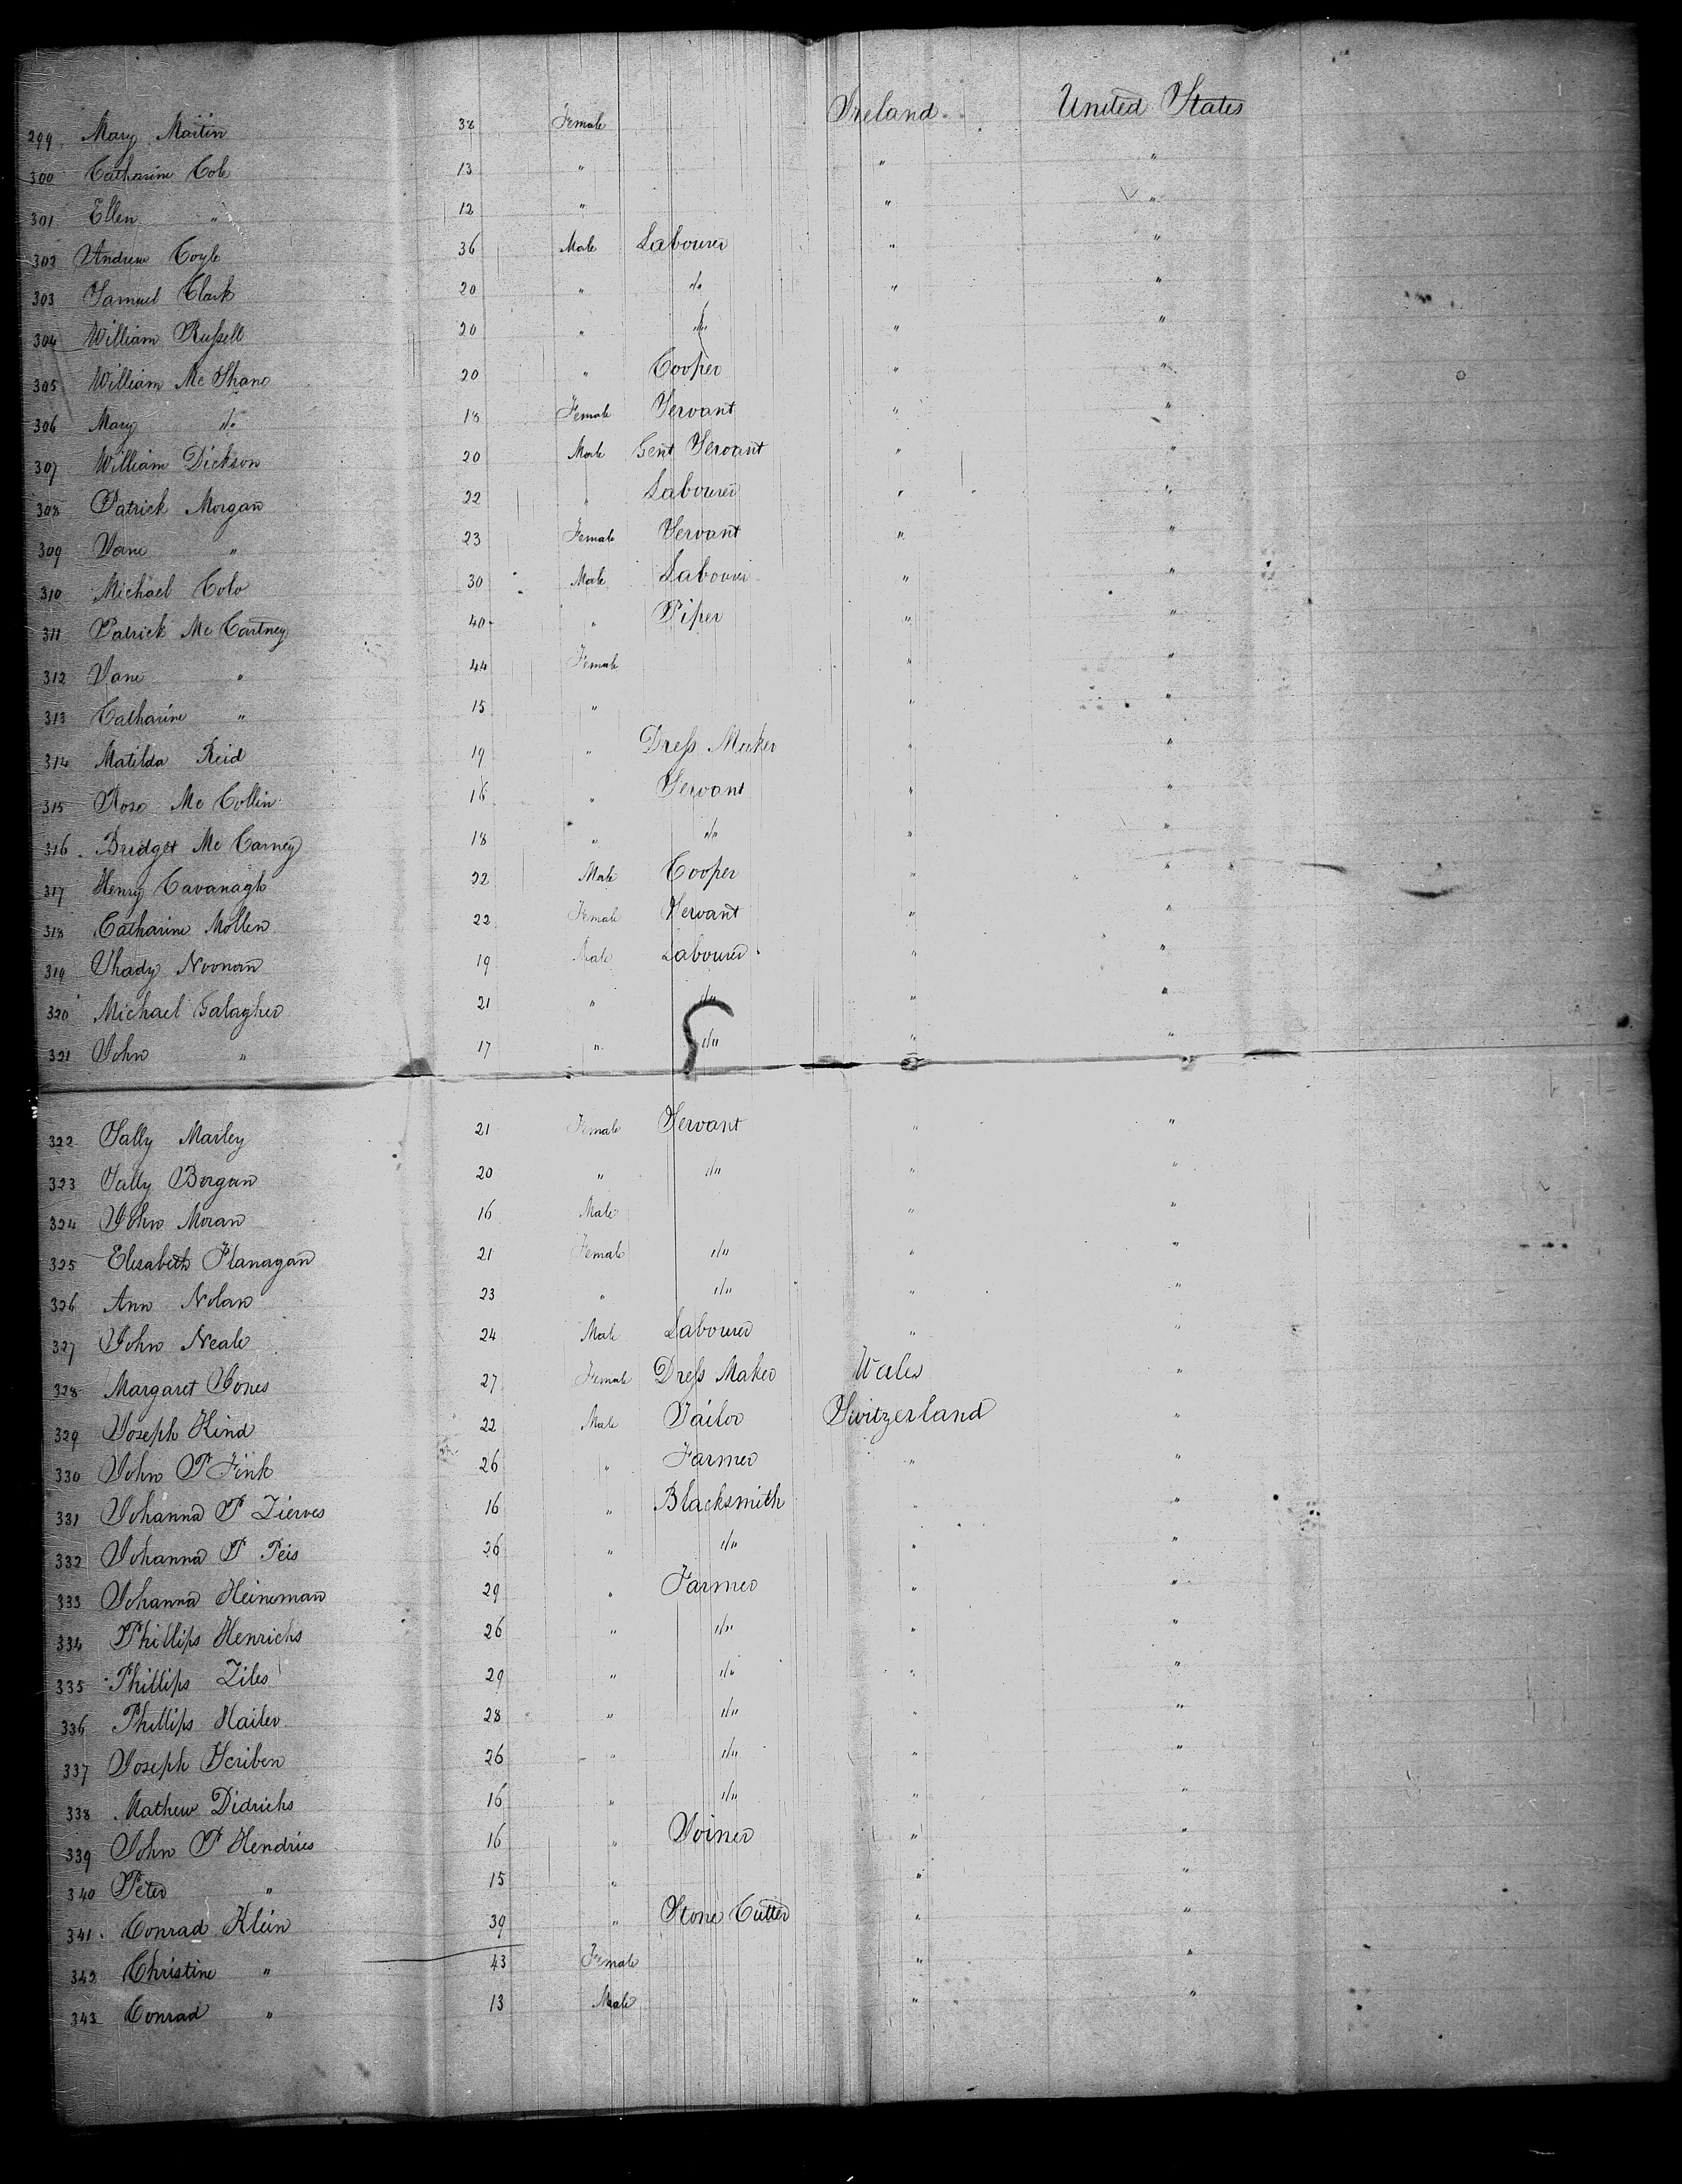 299 Mary Martin 38 Female Ireland United States
300 Catharine Cole 13 " " "
301 Ellen " 12 " " "
302 Andrew Coyle 36 Male Labourer " "
303 Samuel Clark 20 " "/" " "
304 William Russell 20 " "/" " "
305 William McShane 20 " Cooper " "
306 Mary "/" 18 Female Servant " "
307 William Dickson 20 Male Gent Servant " "
308 Patrick Morgan 22 " Labourer " "
309 Jane " 23 Female Servant " "
310 Michael 30 Male Labourer " "
311 Patrick McCartney 40 " Piper " "
312 Jane " 44 Female " "
313 Catharine " 15 " " "
314 Matilda Reid 19 " Dress Maker " "
315 Rose McCollin 16 " Servant " "
316 Bridget McCarney 18 " "/" " "
317 Henry Cavanagh 22 Male Cooper " "
318 Catharine Mollen 22 Female Servant " "
319 Thady Noonan 19 Male Labourer " "
320 Michael Galagher 21 " "/" " "
321 John " 17 " "/" " "
322 Sally Marley 21 Female Servant " "
323 Sally Bergan 20 " "/" " "
324 John Moran 16 Male " "
325 Elisabeth Flanagan 21 Female "/" " "
326 Ann Nolan 23 " "/" " "
327 John Neale 24 Male Labourer " "
328 Margaret Jones 27 Female Dress Maker Wales "
329 Joseph Kind 22 Male Tailor Switzerland "
330 John P Fink 26 " Farmer " "
331 Johanna P 16 " Blacksmith " "
332 Johanna P Peis 26 " "/" " "
333 Johanna Heineman 29 " Farmer " "
334 Phillips Henrichs 26 " "/" " "
335 Phillips Ziles 29 " "/" " "
336 Phillips Hailer 28 " "/" " "
337 Joseph Scriben 26 " "/" " "
338 Mathew Didrichs 16 " "/" " "
339 John P Hendries 16 " Joiner " "
340 Peter " 15 " " "
341 Conrad Klein 39 " Stone Cutter " "
342 Christine " 43 Female " "
343 Conrad " 13 Male " "